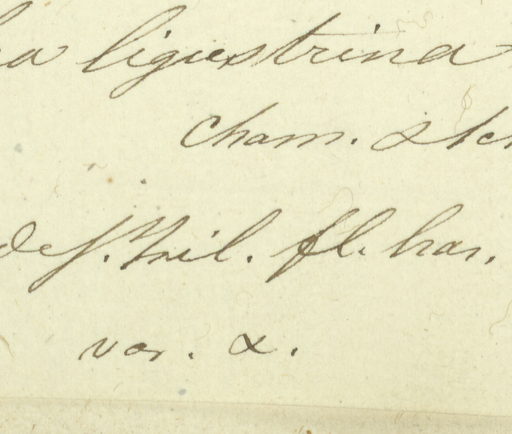 ea ligustrina
Cham. & Sch
de St. Hil. fl. bras.
var. α.